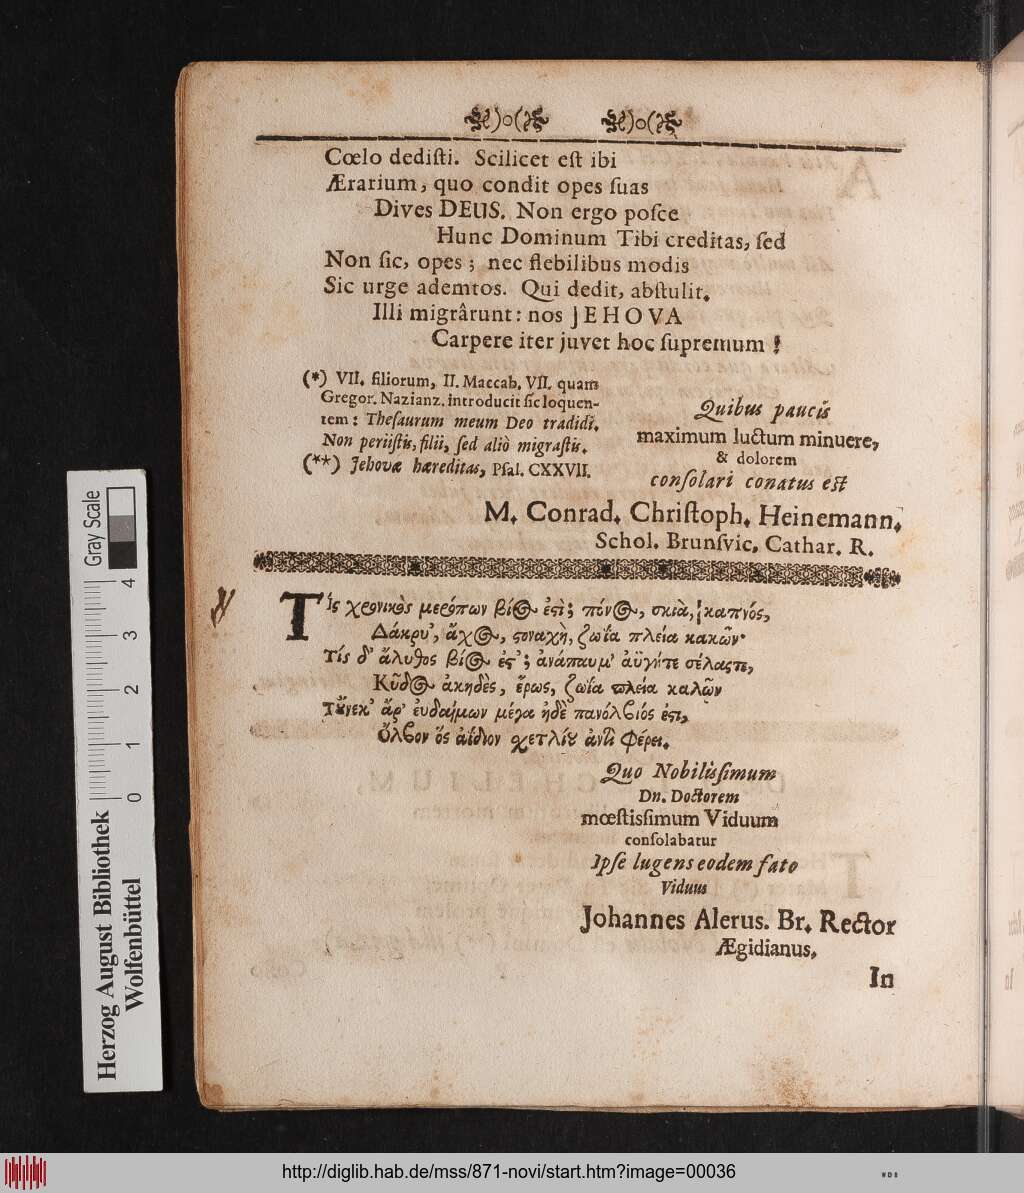 Cœlo dediſti. Scilicet eſt ibi
Ærarium, quo condit opes ſuas
Dives DEUS. Non ergo poſce
Hunc Dominum Tibi creditas, ſed
Non ſic, opes; nec flebilibus modis
Sic urge ademtos. Qui dedit, abſtulit.
Illi migrârunt: nos JEHOVA
Carpere iter juvet hoc ſupremum!
(*) VII. filiorum, II. Maccab. VII. quam
Gregor. Nazianz. introducit ſic loquen-
tem: Theſaurum meum Deo tradidi.
Non periiſtis, filii, ſed aliò migraſtis.
(**) Jehovæ hæreditas, Pſal. CXXVII.
Quibus paucis
maximum luctum minuere,
& dolorem
conſolari conatus eſt
M. Conrad. Chriſtoph. Heinemann.
Schol. Brunſvic. Cathar. R.
Τίς χρονικὸς μερόπων βίος ἐστί; πόνος, σκιὰ, καπνός,
Δάκρυ', ἄχος, στοναχὴ, ζωΐα πλεία κακῶν·
Τίς δ' ἄλυθος βίος ἐς'; ἀνάπαυμ' ἀϋγήτε σέλαςτε,
Κῦδος ἀκηδὲς, ἔρως, ζωΐα πλεία καλῶν
Τοὔνεκ' ἄρ' ἐυδαίμων μέγα ἠδὲ πανόλβιός ἐστι,
Ὄλβον ὅς ἀΐδιον σχετλίου ἀντὶ φέρει.
Quo Nobilisſimum
Dn. Doctorem
mœſtisſimum Viduum
conſolabatur
Ipſe lugens eodem fato
Viduus
Johannes Alerus. Br. Rector
Ægidianus.
In
Gray Scale
0 1 2 3 4
Herzog August Bibliothek
Wolfenbüttel
http://diglib.hab.de/mss/871-novi/start.htm?image=00036